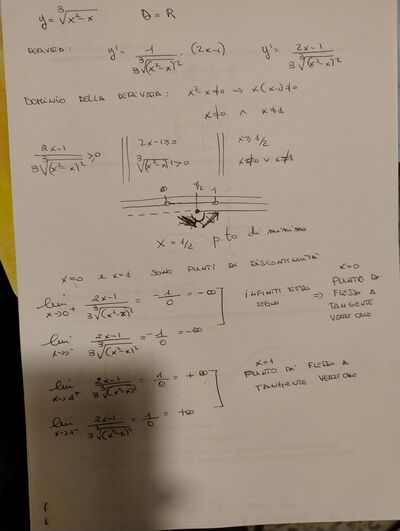 y = ∛(x²-x)   D = R
DERIVATA: y' = 1/(3∛(x²-x)²) · (2x-1)   y' = (2x-1)/(3∛(x²-x)²)
DOMINIO DELLA DERIVATA: x²-x≠0 → x(x-1)≠0
x≠0 ∧ x≠1
(2x-1)/(3∛(x²-x)²) ≥0 || 2x-1≥0 || x≥1/2
∛(x²-x)² >0 || x≠0 ∨ x≠1
0 1/2 1
x = 1/2 p.to di minimo
x=0 e x=1 SONO PUNTI DI DISCONTINUITÀ
lim x→0⁺ (2x-1)/(3∛(x²-x)²) = -1/0 = -∞
lim x→0⁻ (2x-1)/(3∛(x²-x)²) = -1/0 = -∞
INFINITI STESSO SEGNO ⇒ x=0 PUNTO DI FLESSO A TANGENTE VERTICALE
lim x→1⁺ (2x-1)/(3∛(x²-x)²) = 1/0 = +∞
lim x→1⁻ (2x-1)/(3∛(x²-x)²) = 1/0 = +∞
x=1
PUNTO DI FLESSO A
TANGENTE VERTICALE